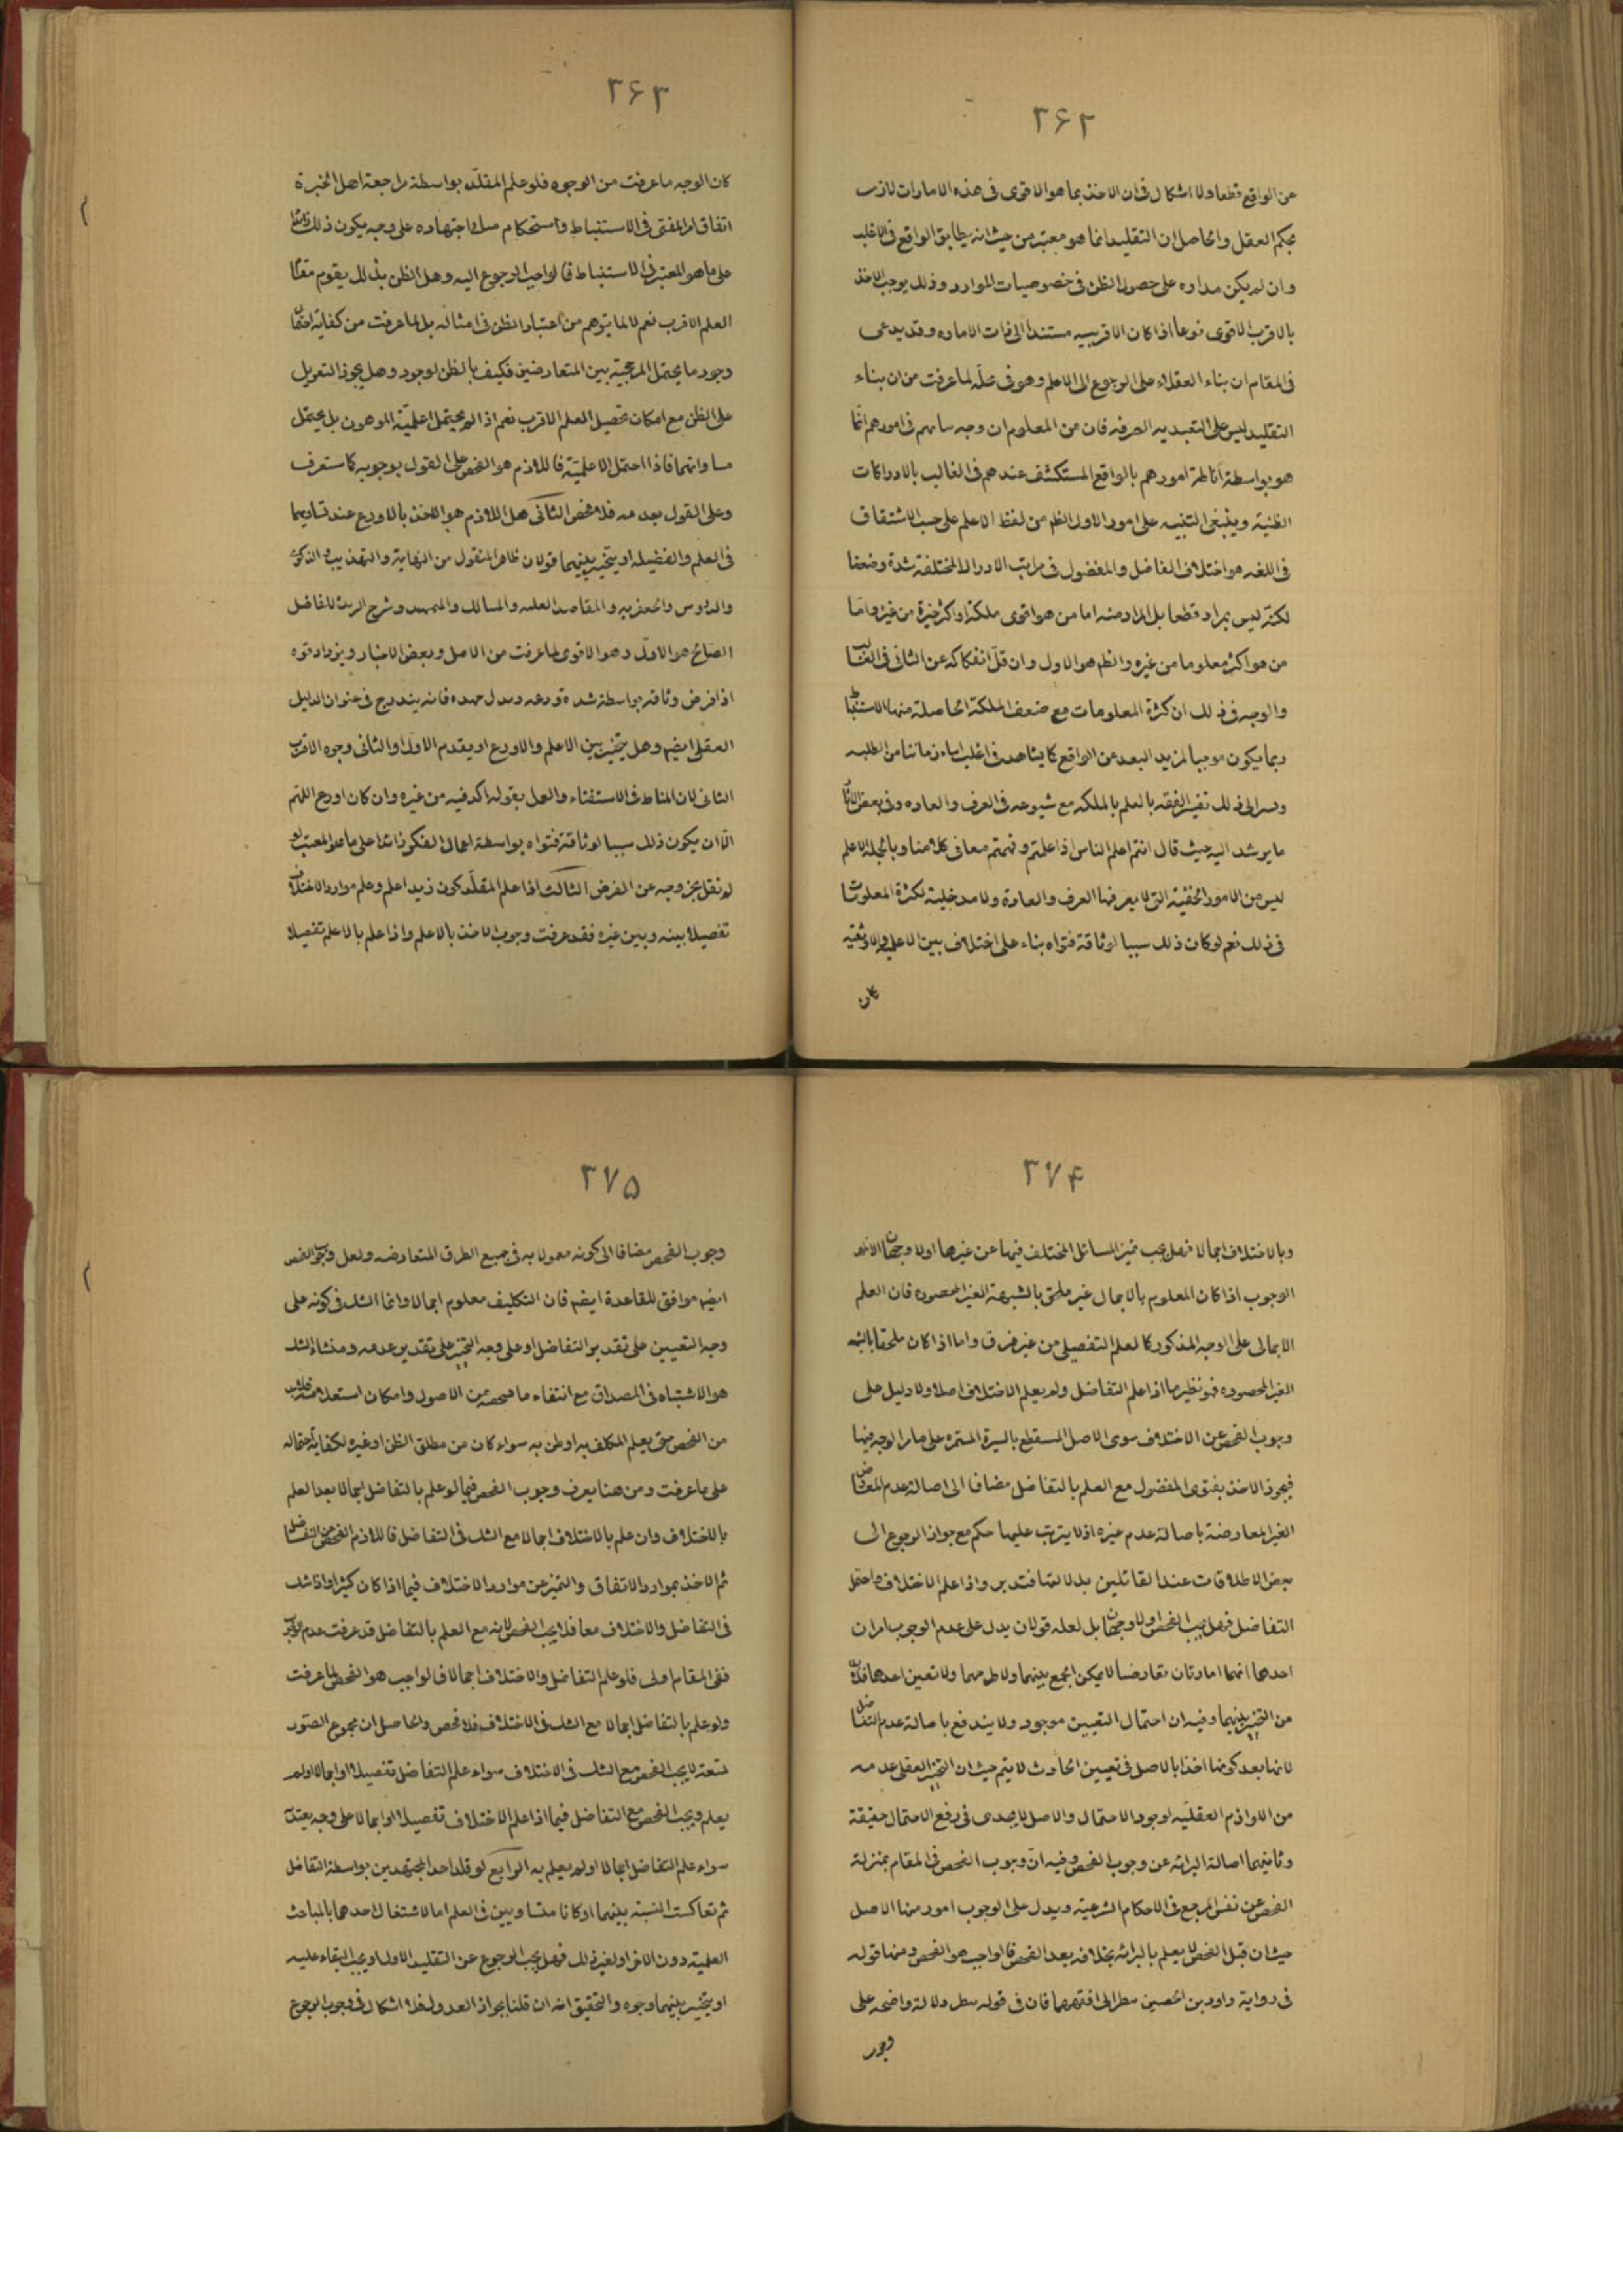 ۳۶۲
عن الواقع قطعا ولا اشكال فى ان الاخذ بما هو الاقوى فى هذه الامارات لازب
بحكم العقل والحاصل ان التقليد انما هو معتبر من حيث انه يطابق الواقع فى الاغلب
وان لم يكن مداره على حصول الظن فى خصوصيات الموارد وذلك يوجب الاخذ
بالاقرب الاقوى نوعا اذا كان الاقربيه مستندا الى ذات الاماره وقد يدعى
فى المقام ان بناء العقلاء على الرجوع الى الاعلم وهو فى محله لما عرفت من ان بناء
التقليد ليس على التعبديه الصرفه فان من المعلوم ان وجه بنائهم فى امورهم انما
هو بواسطة اناطة امورهم بالواقع المستكشف عندهم فى الغالب بالادراكات
الظنية وينبغى التنبيه على امور الاول الظم من لفظ الاعلم على حسب الاشتقاق
فى اللغه هو اختلاف الفاضل والمفضول فى مراتب الادراك المختلفة شدة وضعفا
لكنه ليس بمراد قطعا بل المراد منه اما من هو اقوى ملكة او اكثر خبرة من غيره واما
من هو اكثر معلوما من غيره والظم هو الاول وان قل انفكاكه عن الثانى فى الغالب
والوجه فى ذلك ان كثرة المعلومات مع ضعف الملكة الحاصلة منها الاستنباط
ربما يكون موجبا لمزيد البعد عن الواقع كما يشاهد فى اغلب ابناء زماننا من الطلبه
ومرالى ذلك تفسير الفقه بالعلم بالملكه مع شيوعه فى العرف والعاده وفى بعض الاثار
ما يرشد اليه حيث قال انتم اعلم الناس اذا علمتم وفهمتم معانى كلامنا وبالجملة الاعلم
ليس من الامور الخفية التى لا يعرفها العرف والعادة ولا مدخلية لكثرة المعلومات
فى ذلك نعم لو كان ذلك سببا لوثاقة فتواه بناء على اختلاف بين الاعلميه والاوثقيه
كان
۳۶۳
كان الوجه ما عرفت من الوجوه فلو علم المقلد بواسطة مراجعة اهل الخبرة
اتفاق امر المفتى فى الاستنباط واستحكام مبانى اجتهاده على وجه يكون ذلك زائدا
على ما هو المعتبر فى الاستنباط فالواجب الرجوع اليه وهل الظن بذلك يقوم مقام
العلم الاقرب نعم لا لما يتوهم من اعتبار الظن فى امثاله بل لما عرفت من كفاية احتمال
وجود ما يحتمل المرجحية بين المتعارضين فكيف بالظن لوجود وهل يجوز التعويل
على الظن مع امكان تحصيل العلم الاقرب نعم اذا لم يحتمل اعلمية الموهون بل يحتمل
مساواتهما فاذا احتمل الاعلمية فاللازم هو الفحص على القول بوجوبه كما ستعرف
وعلى القول بعدمه فلا فحص الثانى هل اللازم هو الاخذ بالاورع عند تساويهما
فى العلم والفضيله او يتخير بينهما قولان ظاهر المنقول من النهاية والتهذيب والذكرى
والدروس والجعفريه والمقاصد العليه والمسالك والتمهيد وشرح الزبدة للفاضل
الصالح هو الاول وهو الاقوى لما عرفت من الاصل وبعض الاخبار ويزداد قوه
اذا فرض وثاقته بواسطة شدة ورعه وبذل جهده فانه يندرج فى عنوان الدليل
العقلى ايضم وهل يتخير بين الاعلم والاورع او يقدم الاول او الثانى وجوه الاقرب
الثانى لان المناط فى الاستفتاء والعمل بقوله اكد فيه من غيره وان كان اورع اللهم
الا ان يكون ذلك سببا لوثاقة فتواه بواسطة اعمال الفكر زائدا على ما هو المعتبر
لو نقل بخروجه عن الفرض الثالث اذا علم المقلد كون زيد اعلم وعلم موارد الاختلاف
تفصيلا بينه وبين غيره فقد عرفت وجوب الاخذ بالاعلم واذا علم بالاعلم تفصيلا
۳۷۴
وبالاختلاف اجمالا فهل يجب تميز المسائل المختلف فيها عن غيرها اولا وجهان الاظهر
الوجوب اذا كان المعلوم بالاجمال غير ملحق بالشبهة الغير المحصوره فان العلم
الاجمالى على الوجه المذكور كالعلم التفصيلى من غير فرق واما اذا كان ملحقا بالشبه
الغير المحصوره فهو نظير ما اذا علم التفاضل ولم يعلم الاختلاف اصلا ولا دليل على
وجوب الفحص عن الاختلاف سوى الاصل المنقطع بالسيرة المستمره على ما مر الوجه فيها
فيجوز الاخذ بفتوى المفضول مع العلم بالتفاضل مضافا الى اصالة عدم المعارض
الغير المعارضة باصالة عدم غيره اذ لا يترتب عليها حكم مع جواز الرجوع الى
بعض الاطلاقات عند القائلين بدلالتها فتدبر واذا علم الاختلاف واحتمل
التفاضل فهل يجب الفحص اولا وجهان بل لعله قولان يدل على عدم الوجوب امران
احدهما انهما امارتان تعارضا لا يمكن الجمع بينهما ولا طرحهما ولا تعين احدهما فلابد
من التخيير بينهما وفيه ان احتمال التعيين موجود ولا يندفع باصالة عدم التفاضل
لانها بعد كونها اخذا بالاصل فى تعيين الحادث لا يتم حيث ان التخيير العقلى عدمه
من اللوازم العقليه لوجود الاحتمال والاصل لا يجدى فى رفع الاحتمال حقيقة
وثانيهما اصالة البرائه عن وجوب الفحص وفيه ان وجوب الفحص فى المقام بمنزلة
الفحص عن نفس المرجع فى الاحكام الشرعية ويدل على الوجوب امور منها الاصل
حيث ان قبل الفحص لا يعلم بالبرائه بخلافه بعد الفحص فالواجب هو الفحص ومنها قوله
فى رواية داود بن الحصين ينظر الى افقههما فان فى قوله ينظر دلالة واضحه على
وجوب
۳۷۵
وجوب الفحص مضافا الى كونه معمولا به فى جميع الطرق المتعارضه ولعل وجوب الفحص
ايضم موافق للقاعدة ايضم فان التكليف معلوم اجمالا وانما الشك فى كونه على
وجه التعيين على تقدير التفاضل او على وجه التخيير على تقدير عدمه ومنشاء الشك
هو الاشتباه فى المصداق مع انتفاء ما عن الاصول وامكان استعلامه فلابد
من الفحص حتى يعلم المكلف به او ظن به سواء كان من مطلق الظن او غيره لكفاية احتماله
على ما عرفت ومن هنا يعرف وجوب الفحص فيما لو علم بالتفاضل اجمالا بعد العلم
بالاختلاف وان علم بالاختلاف اجمالا مع الشك فى التفاضل فاللازم الفحص عن التفاضل
ثم الاخذ بموارد الاتفاق والتميز عن موارد الاختلاف فيما اذا كان كثيرا واذا شك
فى التفاضل والاختلاف معا فلا يجب الفحص لانه مع العلم بالتفاضل قد عرفت عدم الوجوب
ففى المقام اولى فلو علم التفاضل والاختلاف اجمالا فالواجب هو الفحص لما عرفت
ولو علم بالتفاضل اجمالا مع الشك فى الاختلاف فلا فحص والحاصل ان مجموع الصور
تسعة لا يجب الفحص مع الشك فى الاختلاف سواء علم التفاضل تفصيلا او اجمالا او لم
يعلم ويجب الفحص مع التفاضل فيما اذا علم الاختلاف تفصيلا او اجمالا على وجه يعتد به
سواء علم التفاضل اجمالا او لم يعلم به الرابع لو قلد احد المجتهدين بواسطة التفاضل
ثم تعاكست النسبة بينهما او كانا متساويين فى العلم اما لاشتغال احدهما بالمباحث
العلمية دون الاخر او لغير ذلك فهل يجب الرجوع عن التقليد الاول او يجب البقاء عليه
او يتخير بينهما وجوه والتحقيق انه ان قلنا بجواز العدول فلا اشكال فى وجوب الرجوع